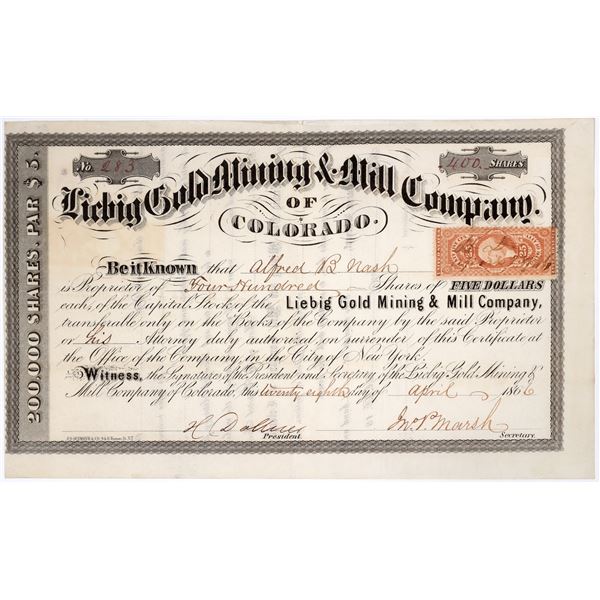 200,000 SHARES, PAR $5.
No. 283
400 SHARES
Liebig Gold Mining & Mill Company.
OF
COLORADO.
Be it Known that Alfred B Nash
is Proprietor of Four Hundred Shares of FIVE DOLLARS
each, of the Capital Stock of the Liebig Gold Mining & Mill Company,
transferable only on the Books of the Company by the said Proprietor
or his Attorney duly authorized, on surrender of this Certificate at
the Office of the Company, in the City of New York.
Witness, the Signatures of the President and Secretary of the Liebig Gold Mining &
Mill Company of Colorado, this twenty eighth day of April 1866
President.
Jno. P. Marsh
Secretary.
25
25